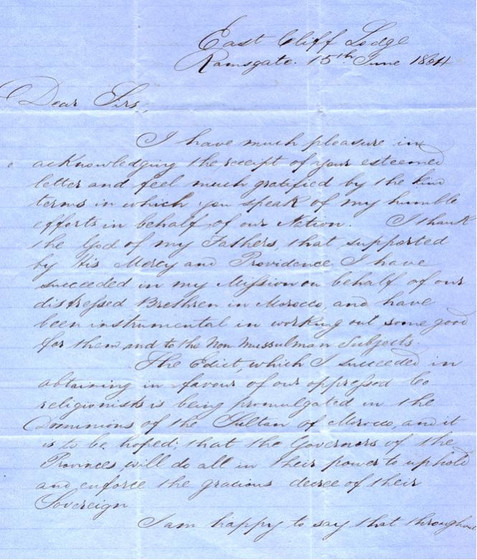 East Cliff Lodge
Ramsgate. 15th June 1864
Dear Sirs,
I have much pleasure in
acknowledging the receipt of your esteemed
letter and feel much gratified by the kind
terms in which you speak of my humble
efforts in behalf of our Nation. I thank
the God of my Fathers, that supported
by His Mercy and Providence I have
succeeded in my Mission on behalf of our
distressed Brethren in Morocco, and have
been instrumental in working out some good
for them and to the Non Mussulman Subjects
The Edict, which I succeeded in
obtaining in favour of our oppressed Co
religionists is being promulgated in the
Dominions of the Sultan of Morocco, and it
is to be hoped, that the Governors of the
Provinces, will do all in their power to uphold
and enforce the gracious decree of their
Sovereign
I am happy to say that throughout